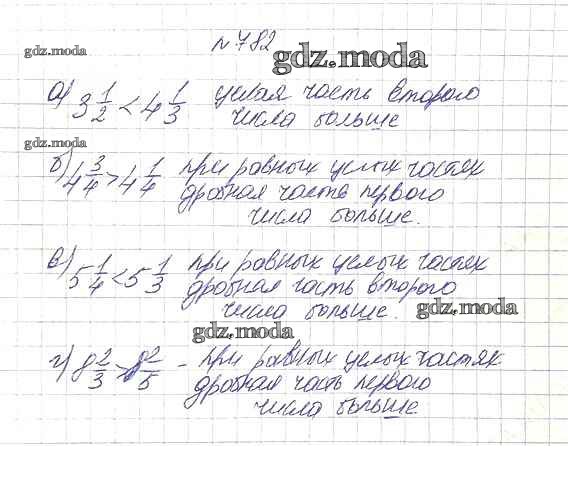 № 782
gdz.moda
gdz.moda
а) 3 1/2 < 4 1/3 целая часть второго
числа больше
gdz.moda
б) 4 3/4 > 4 1/4 при равных целых частях
дробная часть первого
числа больше.
в) 5 1/4 < 5 1/3 при равных целых частях
дробная часть второго
числа больше.
gdz.moda
gdz.moda
г) 8 2/3 > 8 2/5 - при равных целых частях
дробная часть первого
числа больше.